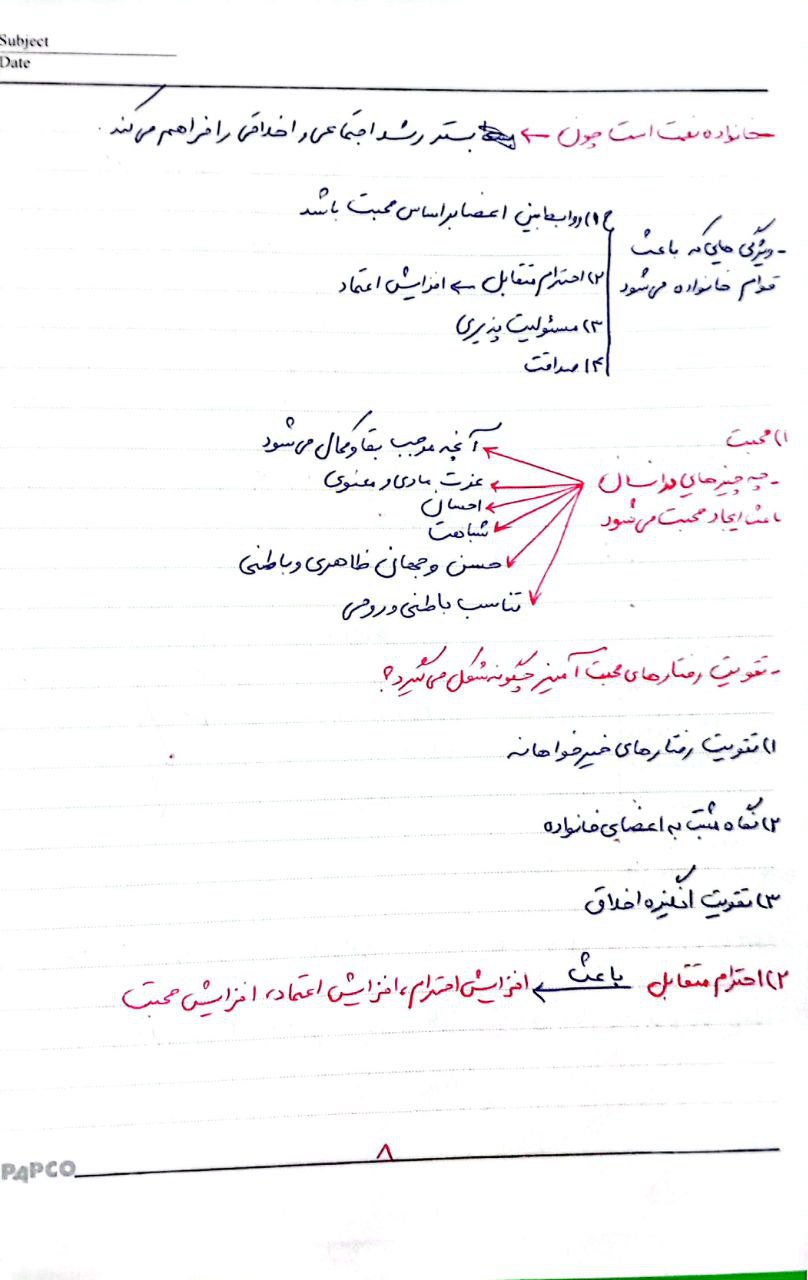 Subject
Date
خانواده نعمت است چون ← بستر رشد اجتماعی و اخلاقی را فراهم می‌کند.
- ویژگی هایی که باعث قوام خانواده می‌شود
۱) روابط بین اعضا براساس محبت باشد
۲) احترام متقابل ← افزایش اعتماد
۳) مسئولیت پذیری
۴) صداقت
۱) محبت
- چه چیزهایی در انسان
باعث ایجاد محبت می‌شود
آنچه موجب بقا و کمال می‌شود
عزت مادی و معنوی
احسان
شباهت
حسن و جمال ظاهری و باطنی
تناسب باطنی و روحی
- تقویت رفتارهای محبت آمیز چگونه شکل می‌گیرد؟
۱) تقویت رفتارهای خیرخواهانه
۲) نگاه مثبت به اعضای خانواده
۳) تقویت انگیزه اخلاق
۲) احترام متقابل باعث ← افزایش احترام، افزایش اعتماد، افزایش محبت
۸
PAPCO